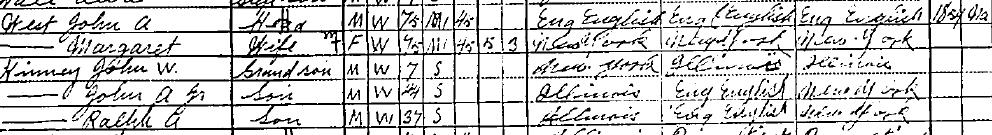 West John A Head M W 75 M1 45 Eng English Eng English Eng English 1854 Na
—— Margaret Wife F W 75 M1 45 5 3 New York New York New York
Kinney John W. Grandson M W 7 S New York Illinois Illinois
—— John A Jr Son M W 24 S Illinois Eng English New York
—— Ralph A Son M W 37 S Illinois Eng English New York